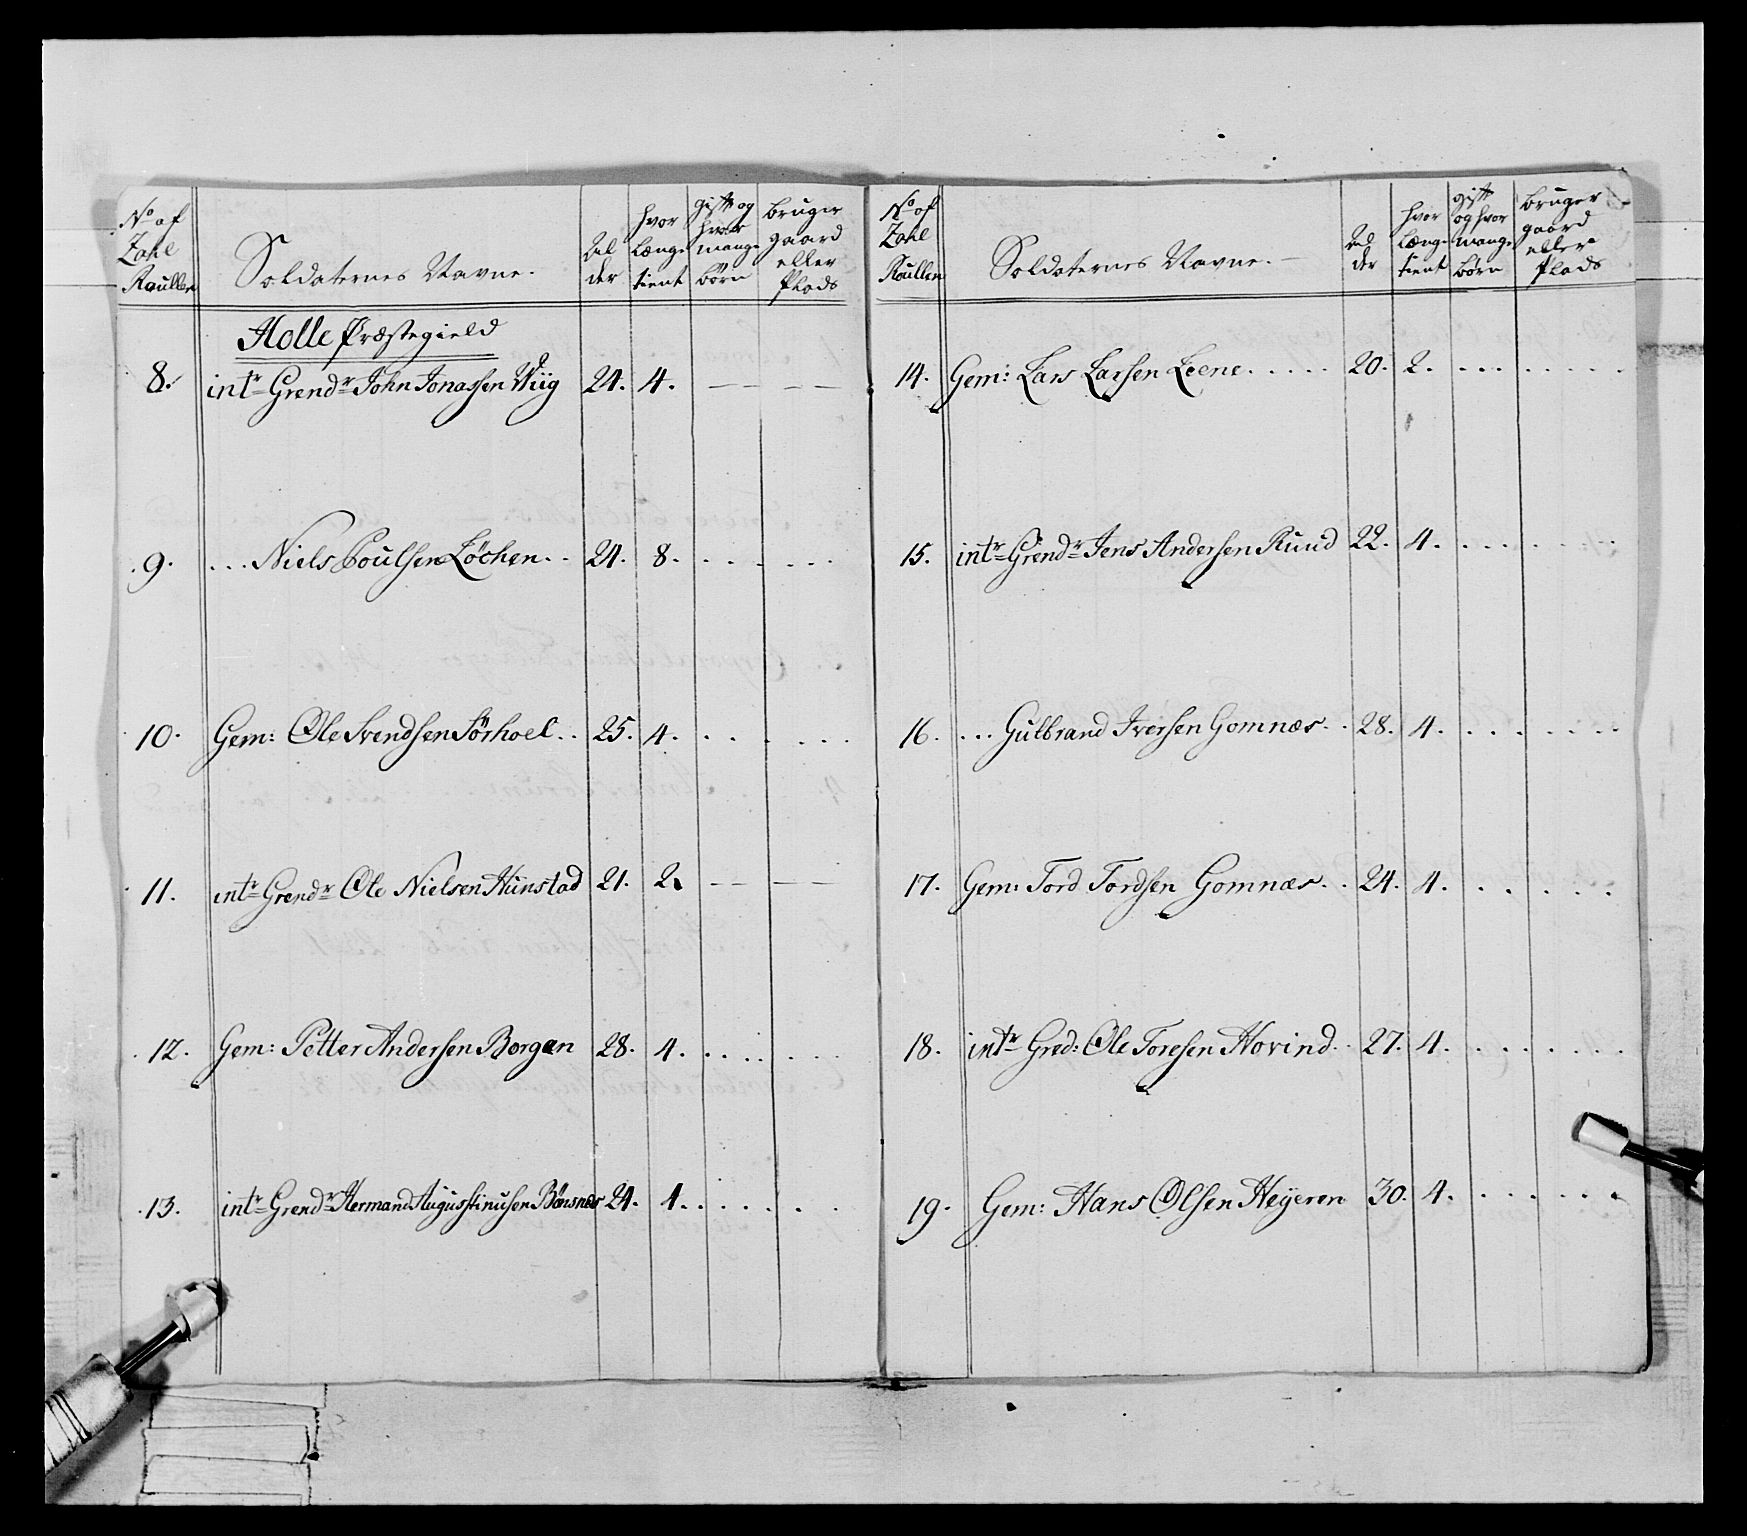 No af Zahl Raullen | Soldaternes Navne. | Al der | hvor længe tient | gift og hvor mange børn | bruger gaard eller Plads
Holle Præstegield
8. intr Grendr John Jonassen Wiig 24. 4. — — — —
9. ... Niels Poulsen Løchen .. 24. 8. . . . . . .
10. Gem: Ole Svendsen Sörhoel .. 25. 4. . . . . . .
11. intr Grendr Ole Nielsen Hunstad 21. 2. — — — —
12. Gem: Petter Andersen Borgen 28. 4. . . . . . .
13. intr Grendr Herman Augustinusen Bönsnæs 24. 4. . . . . . .
No af Zahl Raullen | Soldaternes Navne. | Al der | hvor længe tient | gift og hvor mange børn | bruger gaard eller Plads
14. Gem: Lars Larsen Leene ..... 20. 2. . . . . . . .
15. intr Grendr Jens Andersen Ruud 22. 4. . . . . . .
16. ... Gulbrand Iversen Gomnæs .. 28. 4. . . . . . .
17. Gem: Tord Tordsen Gomnæs .. 24. 4. . . . . . .
18. intr Gred: Ole Toresen Hovind .. 27. 4. . . . . . .
19. Gem: Hans Olsen Heyeren 30. 4. . . . . . .